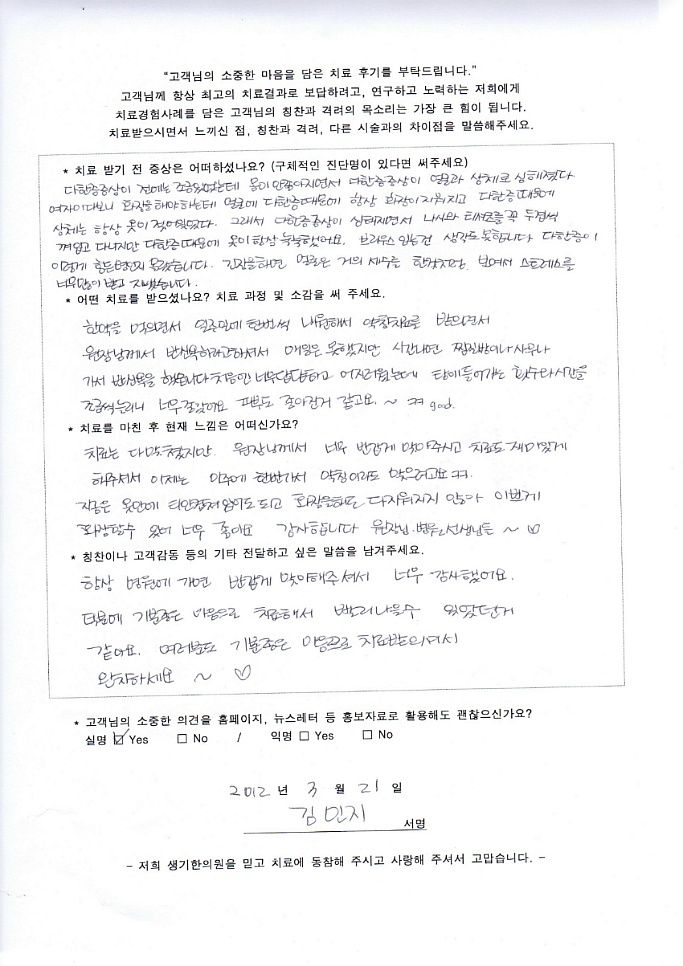 “고객님의 소중한 마음을 담은 치료 후기를 부탁드립니다.”
고객님께 항상 최고의 치료결과로 보답하려고, 연구하고 노력하는 저희에게
치료경험사례를 담은 고객님의 칭찬과 격려의 목소리는 가장 큰 힘이 됩니다.
치료받으시면서 느끼신 점, 칭찬과 격려, 다른 시술과의 차이점을 말씀해주세요.
* 치료 받기 전 증상은 어떠하셨나요? (구체적인 진단명이 있다면 써주세요)
다한증증상이 전에는 조금있었는데 몸이 안좋아지면서 다한증증상이 얼굴과 상체로 심해졌다
여자이다보니 화장을해야하는데 얼굴에 다한증때문에 항상 화장이 지워지고 다한증때문에
상체는 항상 옷이 젖어있었다. 그래서 다한증증상이 심해지면서 나시와 티셔츠를 꼭 두겹씩
껴입고 다니지만 다한증때문에 옷이항상 축축했어요. 브라우스 입는건 생각도 못합니다 다한증이
이렇게 힘든병인지 몰랐습니다. 긴장을하면 얼굴은 거의 세수를 한것처럼 보여서 스트레스를
너무많이 받고 지냈습니다.
* 어떤 치료를 받으셨나요? 치료 과정 및 소감을 써 주세요.
한약을 먹으면서 일주일에 한번씩 내원해서 약침치료를 받으면서
원장님께서 반신욕하라고하셔서 매일은 못했지만 시간나면 찜질방이나 사우나
가서 반신욕을 했습니다 처음엔 너무답답하고 어지러웠는데 탕에들어가는 횟수와 시간을
조금씩늘리니 너무좋았어요 피부도 좋아진거 같고요. ~ ㅋㅋ god.
* 치료를 마친 후 현재 느낌은 어떠신가요?
치료는 다맞쳤지만 원장님께서 너무 반갑게 맞아주시고 치료도 재미있게
해주셔서 이제는 이주에 한번가서 약침이라도 맞으려고요 ㅋㅋ.
지금은 옷안에 티안껴입어도 되고 화장을해도 다지워지지 않아 이쁘게
화장할수 있어 너무 좋아요 감사합니다 원장님·간호선생님들 ~ ♡
* 칭찬이나 고객감동 등의 기타 전달하고 싶은 말씀을 남겨주세요.
항상 병원에 가면 반갑게 맞이해주셔서 너무 감사했어요.
덕분에 기분좋은 마음으로 치료해서 빨리나을수 있었던거
같아요. 여러분도 기분좋은 마음으로 치료받으셔서
완치하세요 ~ ♡
* 고객님의 소중한 의견을 홈페이지, 뉴스레터 등 홍보자료로 활용해도 괜찮으신가요?
실명 ☑ Yes □ No / 익명 □ Yes □ No
2012 년 3 월 21 일
김민지 서명
- 저희 생기한의원을 믿고 치료에 동참해 주시고 사랑해 주셔서 고맙습니다. -